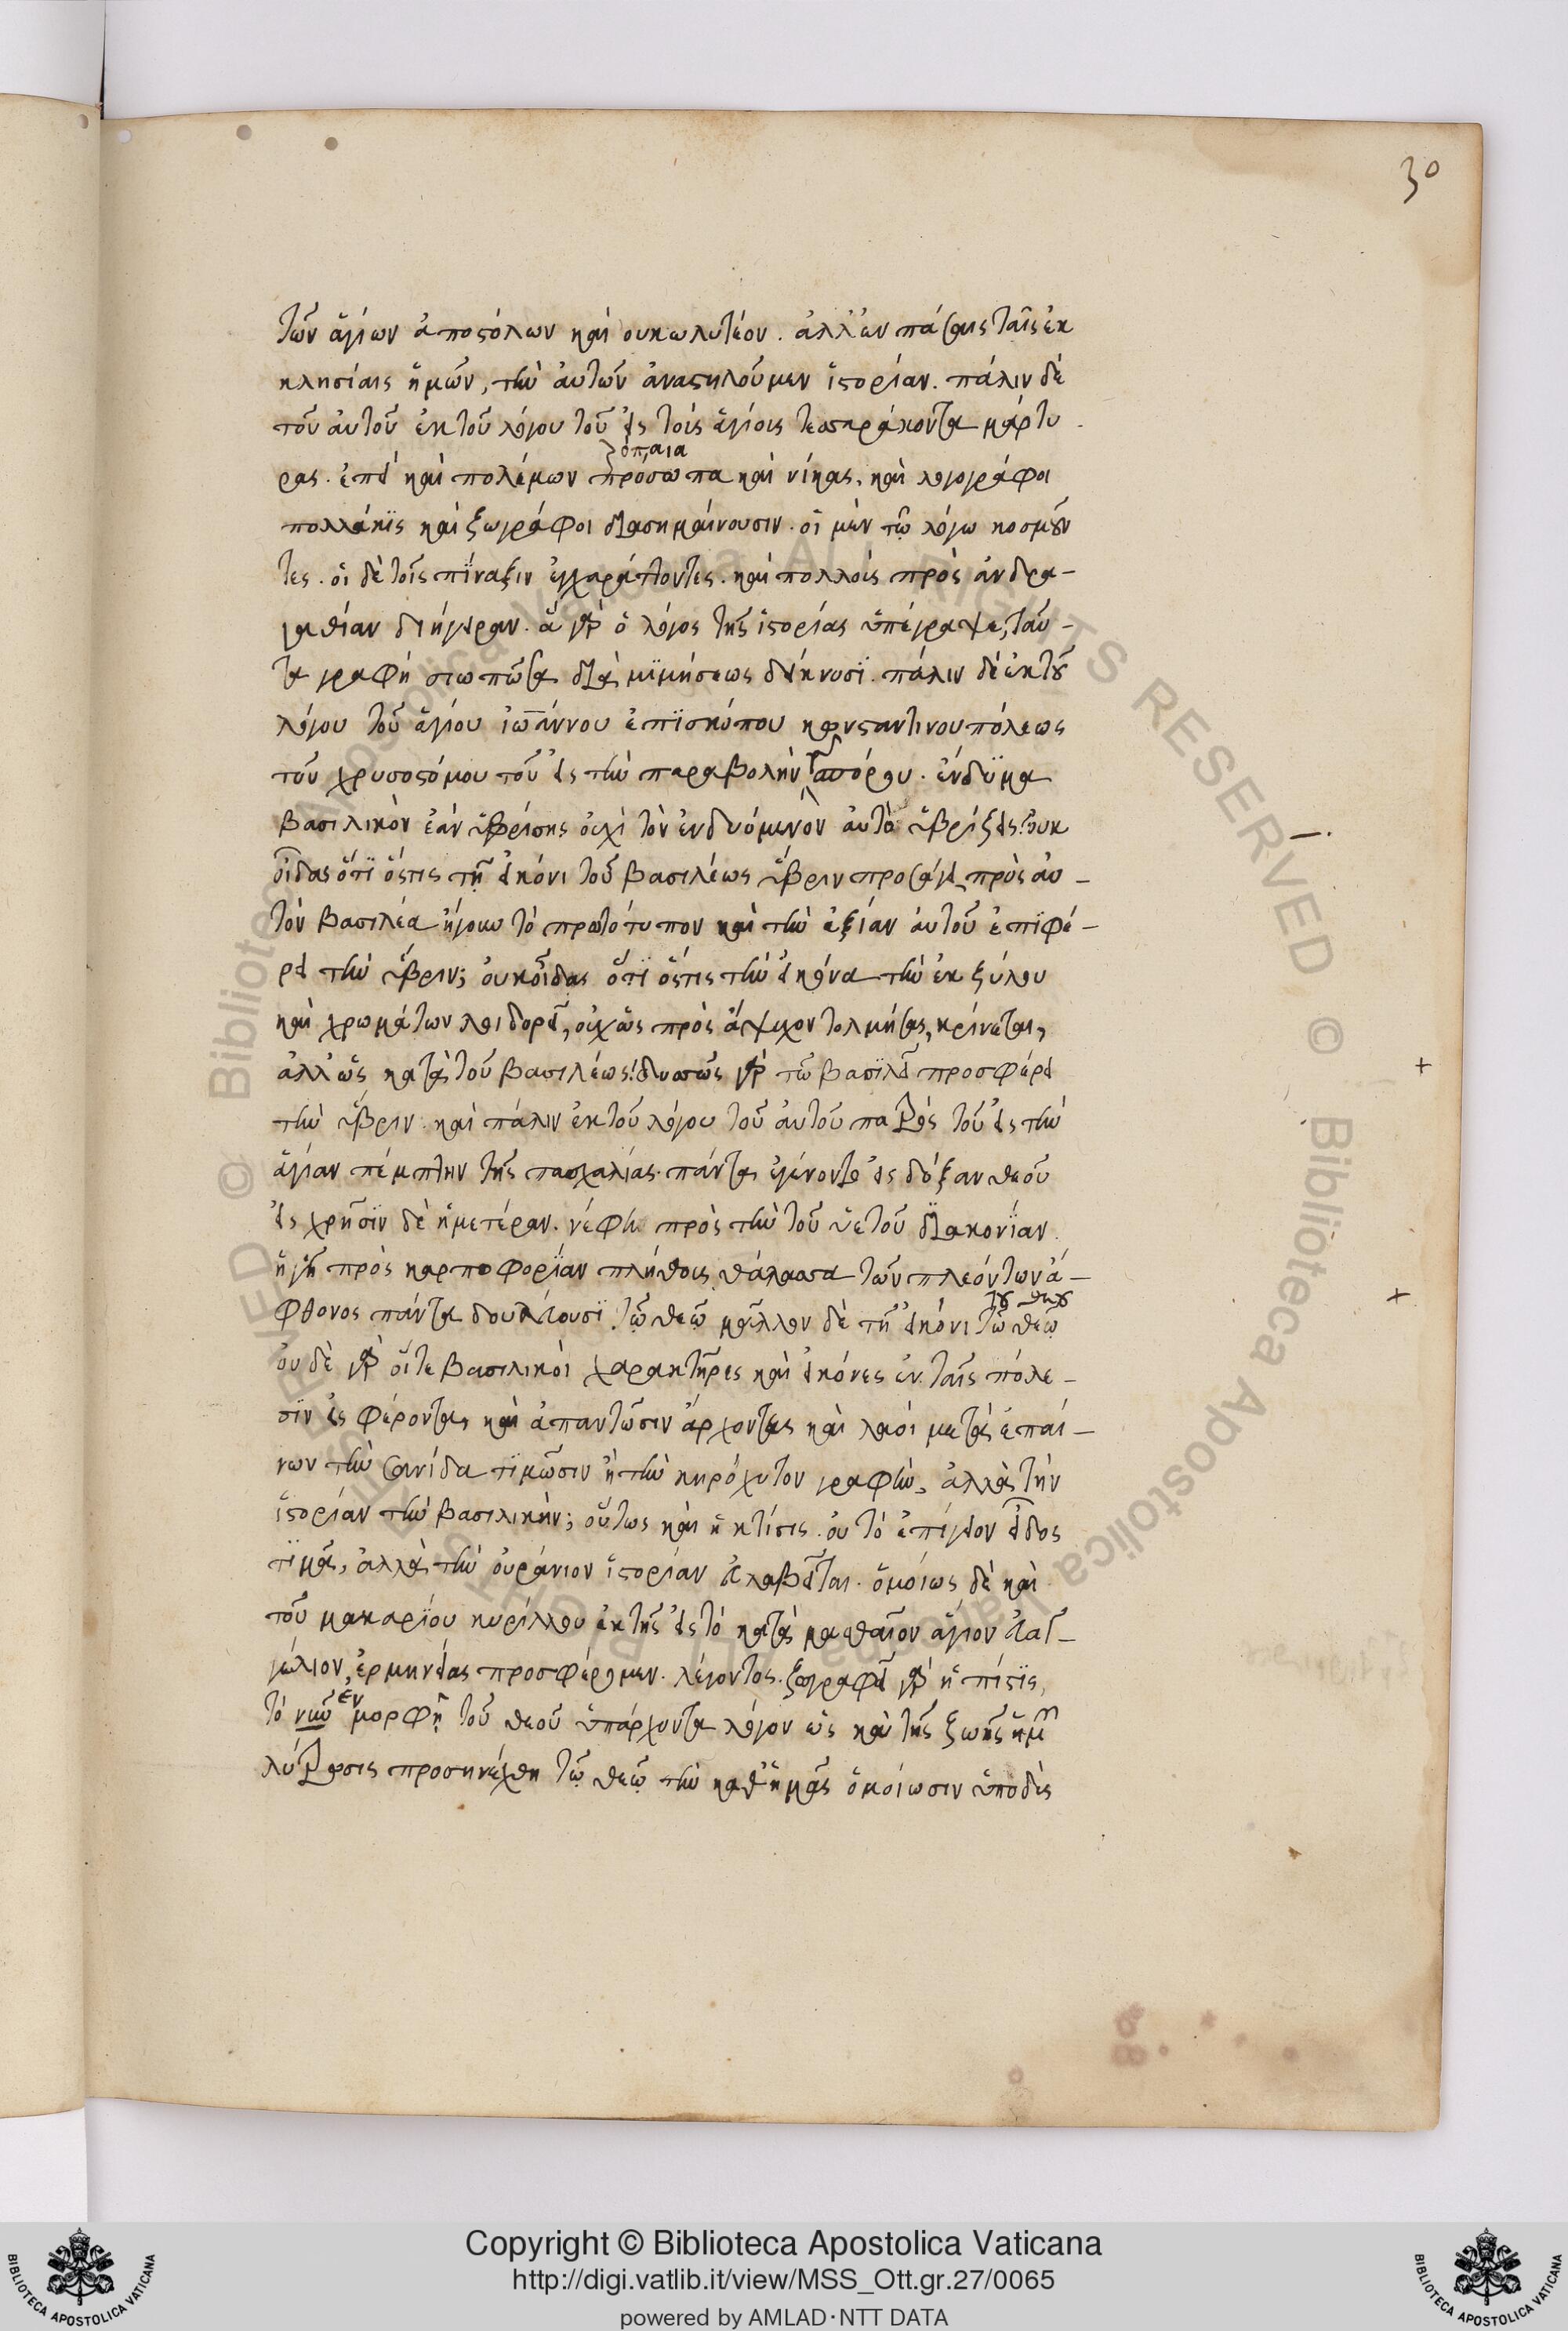 30
τῶν ἁγίων ἀποστόλων καὶ ουκωλυτέον. ἀλλ' ἐν πάσαις ταῖς ἐκ
κλησίαις ἡμῶν, τὴν ἀυτῶν ἀναστηλοῦμεν ἱστορίαν. πάλιν δὲ
τοῦ ἀυτοῦ ἐκ τοῦ λόγου τοῦ εἰς τοὺς ἁγίους τεσσαράκοντα μάρτυ
ρας. ἐπεὶ καὶ πολέμων πρόσωπα καὶ νίκας, καὶ λογογράφοι
πολλάκϊς καὶ ζωγράφοι διασημαίνουσιν. οἱ μὲν τῷ λόγω κοσμοῦν
τες. οἱ δὲ τοῖς πίναξιν ἐγχαράττοντες. καὶ πολλοὺς πρὸς ἀνδρα-
γαθίαν διήγειραν. ἃ γὰρ ὁ λόγος τῆς ἱστορίας ὑπέγραψε, ταῦ-
τα γραφὴ σιωπῶσα διὰ μϊμήσεως δείκνυσϊ. πάλιν δὲ ἐκ τοῦ
λόγου τοῦ ἁγίου ἰωάννου ἐπϊσκόπου κωνσταντινουπόλεως
τοῦ χρυσοστόμου τοῦ εἰς τὴν παραβολὴν τοῦ σπόρου. ἐνδϋμα
βασιλικὸν ἐὰν ὑβρίσης οὐχὶ τὸν ἐνδυόμενον ἀυτὸ ὑβρίζεις; ὀυκ
οἶδας ὅτϊ ὅστις τῇ εἰκόνι τοῦ βασιλέως ὕβριν προσάγει, πρὸς ἀυ-
τὸν βασιλέα ἤγουν τὸ πρωτότυπον καὶ τὴν ἀξίαν ἀυτοῦ ἐπϊφέ-
ρει τὴν ὕβριν; ὀυκ οἶδας ὅτϊ ὅστις τὴν εἰκόνα τὴν ἐκ ξύλου
καὶ χρωμάτων λοιδορεῖ, οὐχ ὡς πρὸς ἄψυχον τολμήσας, κρίνεται,
ἀλλ' ὡς κατὰ τοῦ βασιλέως; δυσσῶς γὰρ τῶ βασϊλεῖ προσφέρει
τὴν ὕβριν. καὶ πάλιν ἐκ τοῦ λόγου τοῦ ἀυτοῦ πατρὸς τοῦ εἰς τὴν
ἁγίαν πέμπτην τῆς πασχαλίας. πάντα ἐγένοντο εἰς δόξαν θεοῦ
εἰς χρῆσϊν δὲ ἡμετέραν. νέφη πρὸς τὴν τοῦ ὑετοῦ διακονίαν.
ἡ γῆ πρὸς καρποφορϊαν πλήθους, θάλασσα τῶν πλεόντων ἀ-
φθονος πάντα δουλεύουσϊ τῷ θεῷ μᾶλλον δὲ τῇ εἰκόνι τῷ θεῷ
ὀυδὲ γὰρ οἵτε βασιλικοὶ χαρακτῆρες καὶ εἰκόνες ἐν ταῖς πόλε-
σϊν εἰσφέρονται, καὶ ἀπαντῶσιν ἄρχοντες καὶ λαοὶ μετὰ ἐπαί-
νων τὴν σανίδα τϊμῶσιν ἢ τὴν κηρόχυτον γραφὴν, ἀλλὰ τὴν
ἱστορίαν τὴν βασιλικήν; οὕτως καὶ ἡ κτίσις. ὀυ τὸ ἐπίγειον εἶδος
τϊμᾷ, ἀλλὰ τὴν ὀυράνιον ἱστορίαν εὐλαβεῖται. ὁμοίως δὲ καὶ
τοῦ μακαρϊου κυρίλλου ἐκ τῆς εἰς τὸ κατὰ ματθαῖον ἅγιον εὐαγ-
γέλιον, ἑρμηνείας προσφέρομεν. λέγοντος. ζωγραφεῖ γὰρ ἡ πίστϊς,
τὸ ἐν μορφῇ τοῦ θεοῦ ὑπάρχοντα λόγον ὡς καὶ τῆς ζωῆς ἡμῶν
λύτρωσις προσηνέχθη τῷ θεῷ τὴν καθ' ἡμᾶς ὁμοίωσιν ὑποδὺς
Copyright © Biblioteca Apostolica Vaticana
http://digi.vatlib.it/view/MSS_Ott.gr.27/0065
powered by AMLAD·NTT DATA
BIBLIOTECA APOSTOLICA VATICANA
BIBLIOTECA APOSTOLICA VATICANA